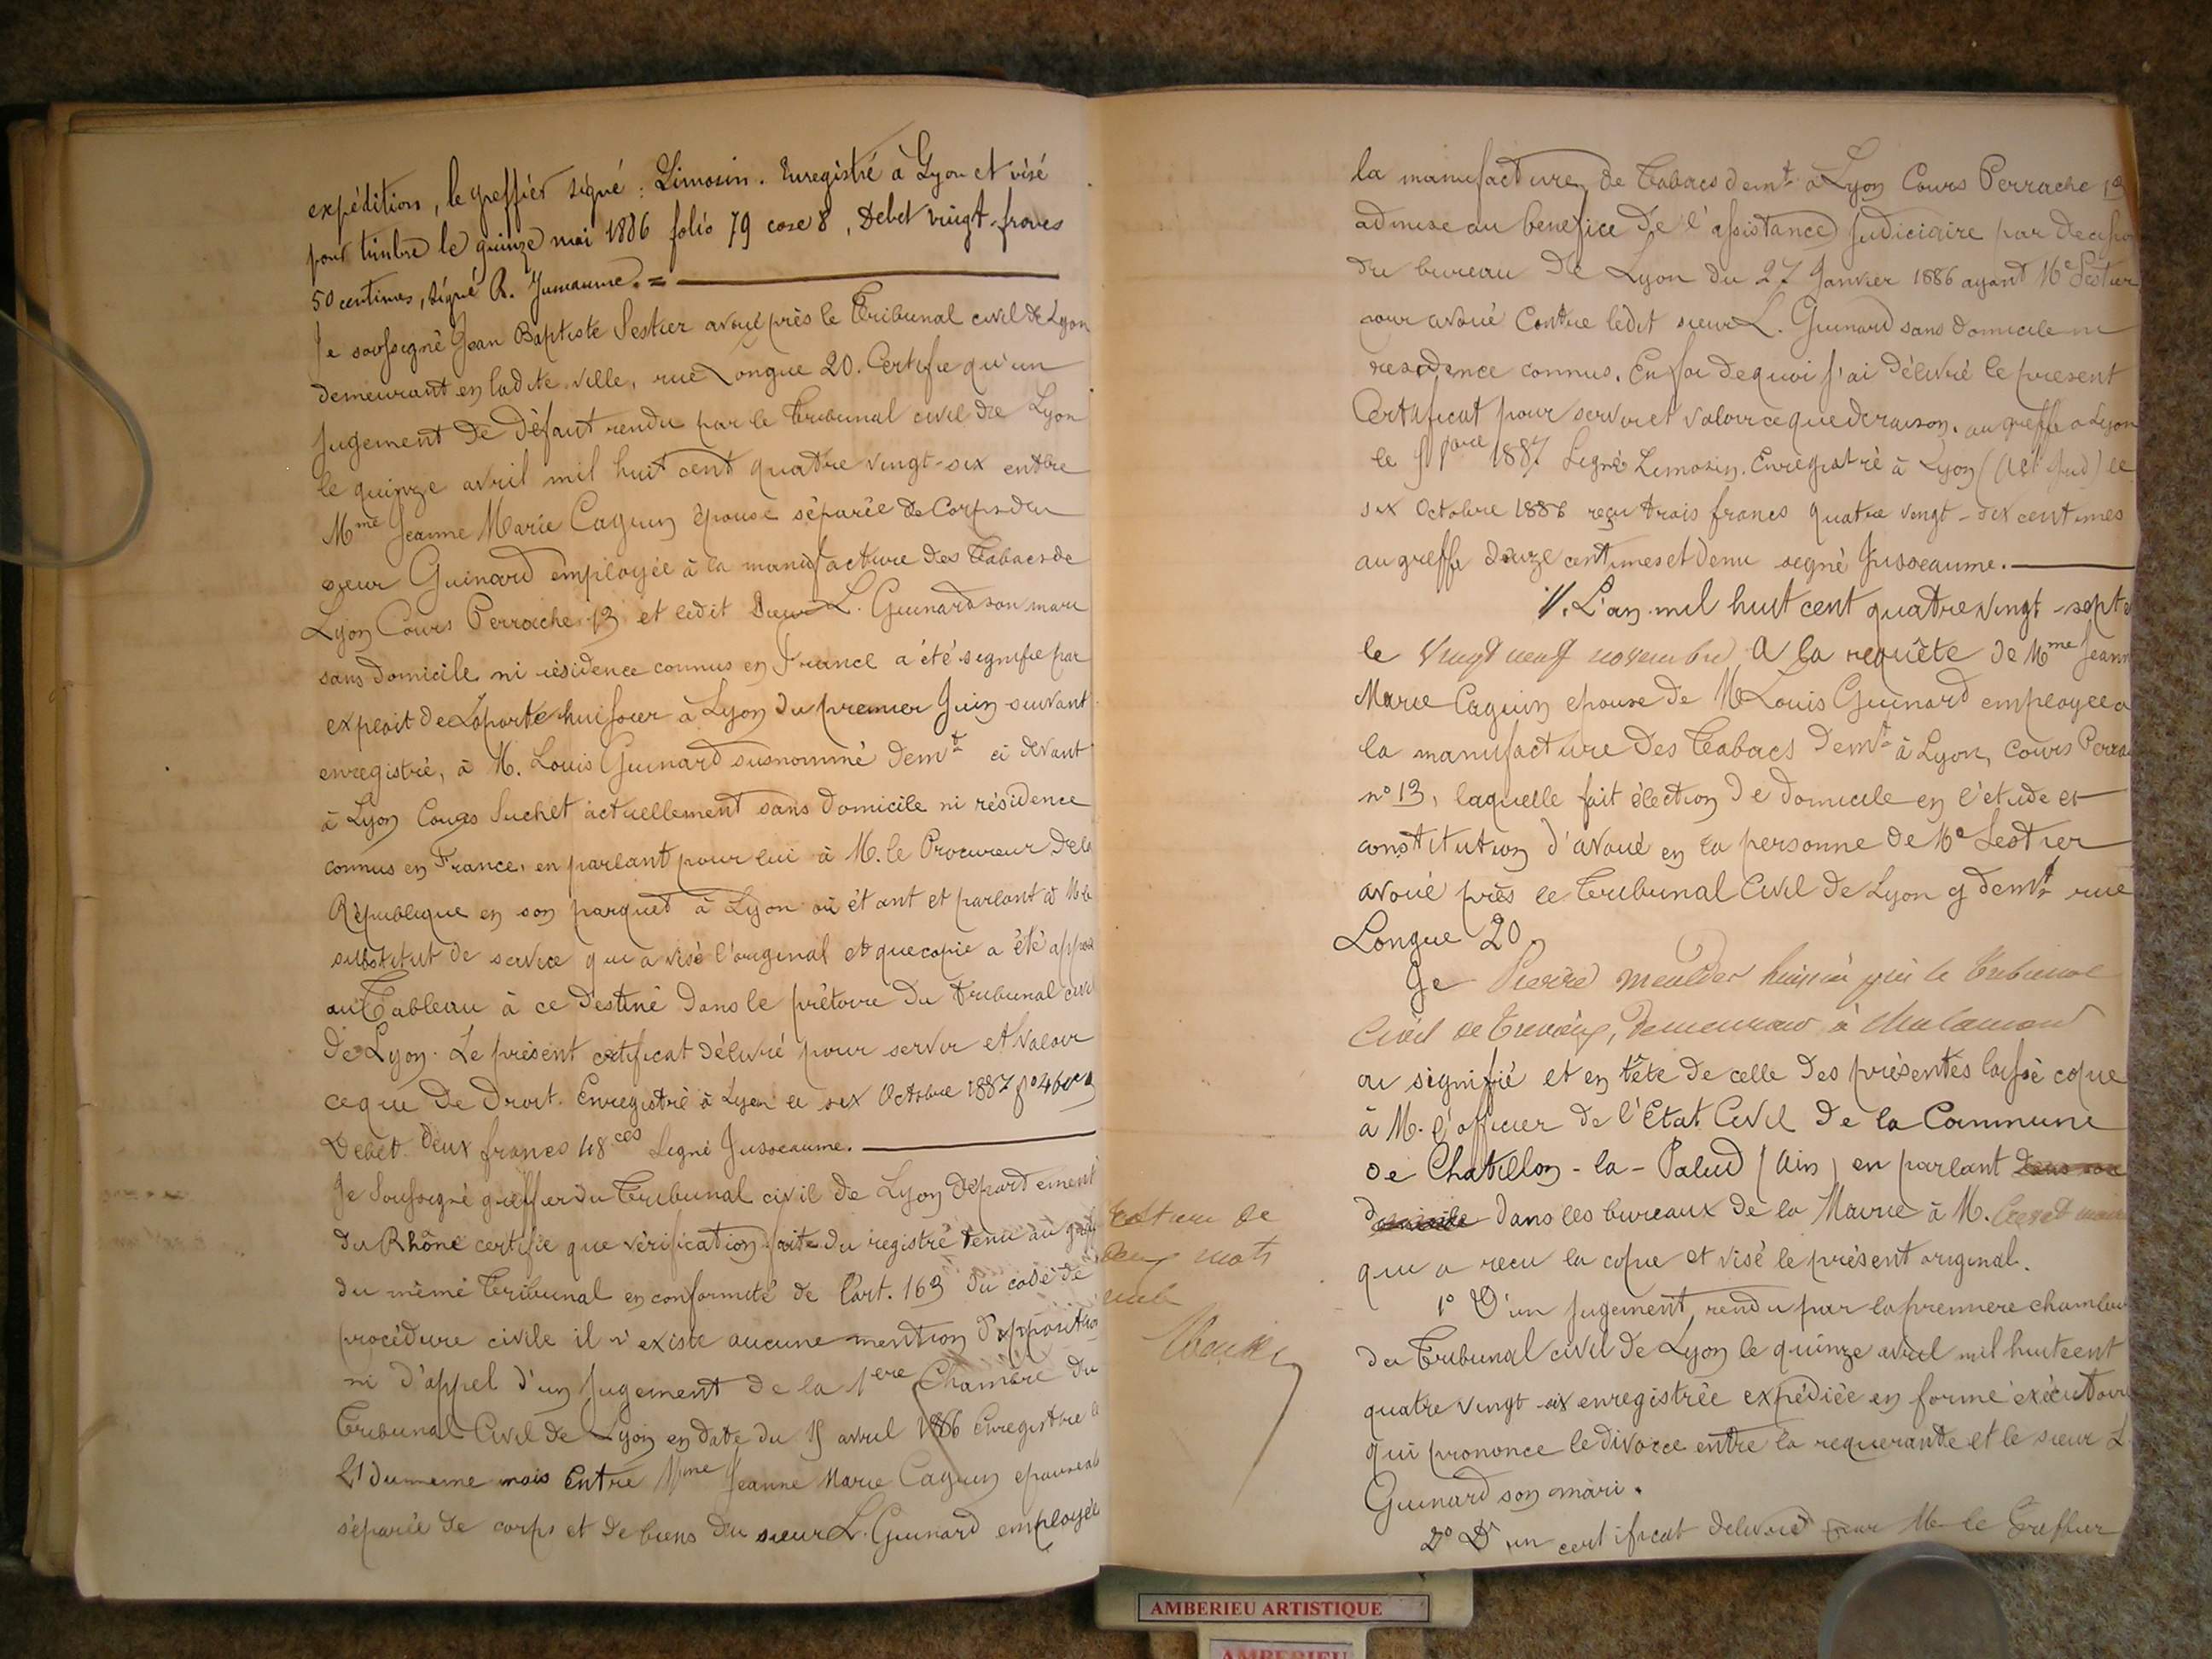 expédition, le greffier signé : Limosin. Enregistré à Lyon et visé
pour timbre le quinze mai 1886 folio 79 case 8, Debet vingt-francs
50 centimes, signé R. Jumeaume. =
Je soussigné Jean Baptiste Sestier avoué près le Tribunal civil de Lyon
demeurant en ladite ville, rue Longue 20. Certifie qu'un
Jugement de défaut rendu par le Tribunal civil de Lyon
le quinze avril mil huit cent quatre vingt-six entre
Mme Jeanne Marie Caguin épouse séparée de Corps du
sieur Guinard employée à la manufacture des Tabacs de
Lyon Cours Perrache 13 et ledit Sieur L. Guinard son mari
sans domicile ni résidence connus en France a été signifié par
exploit de Laporte huissier à Lyon du premier Juin suivant
enregistré, à M. Louis Guinard susnommé demt ci devant
à Lyon Cours Suchet actuellement sans domicile ni résidence
connus en France, en parlant pour lui à M. le Procureur de la
République en son parquet à Lyon où étant et parlant à M. le
substitut de service qui a visé l'original et que copie a été
au Tableau à ce destiné dans le prétoire du tribunal civil
de Lyon. Le présent certificat délivré pour servir et valoir
ce que de droit. Enregistré à Lyon le six Octobre 1887
Debet deux francs 48 ces Signé Jusseaume.
Je Soussigné greffier du Tribunal civil de Lyon département
du Rhône certifie que vérification faite du registre tenu au
du même Tribunal en conformité de l'art. 163 du code de
procédure civile il n'existe aucune mention d'opposition
ni d'appel d'un Jugement de la 1ere Chambre du
Tribunal Civil de Lyon en date du 15 avril 1886 Enregistré le
21 du meme mois Entre Mme Jeanne Marie Caguin epouse
séparée de corps et de biens du sieur L. Guinard employée
deux mots
la manufacture de Tabacs demt à Lyon Cours Perrache 13
admise au benefice de l'assistance Judiciaire par decision
du bureau de Lyon du 27 Janvier 1886 ayant Me Sestier
pour avoué Contre ledit sieur L. Guinard sans domicile ni
residence connus. En foi de quoi j'ai délivré le present
Certificat pour servir et valoir ce que de raison. au greffe a Lyon
le 1887 Signé Limosin. Enregistré à Lyon (Act Jud) le
six Octobre 1886 reçu trois francs quatre vingt-dix centimes
au greffe douze centimes et demi signé Jusseaume.
L'an mil huit cent quatre vingt-sept
le vingt neuf novembre A la requête de Mme Jeanne
Marie Caguin epouse de M Louis Guinard employee a
la manufacture des Tabacs demt à Lyon, cours Perra
no 13, laquelle fait élection de domicile en l'etude et
constitution d'avoué en la personne de Me Sestier
avoué près le Tribunal Civil de Lyon y demt rue
Longue 20.
Je Pierre huissier près le Tribunal
Civil de Trévoux, demeurant à Chalamont
ai signifié et en tête de celle des présentes laissé copie
à M. l'officier de l'Etat Civil de la Commune
de Chatillon-la-Palud (Ain) en parlant dans son
domicile dans les bureaux de la Mairie à M. maire
qui a recu la copie et visé le présent original.
1° D'un jugement rendu par la premiere chambre
du Tribunal civil de Lyon le quinze avril mil huit cent
quatre vingt six enregistrée expédiée en forme exécutoire
qui prononce le divorce entre la requerante et le sieur L.
Guinard son mari.
2° D'un certificat delivré par M. le Greffier
AMBERIEU ARTISTIQUE
AMBERIEU